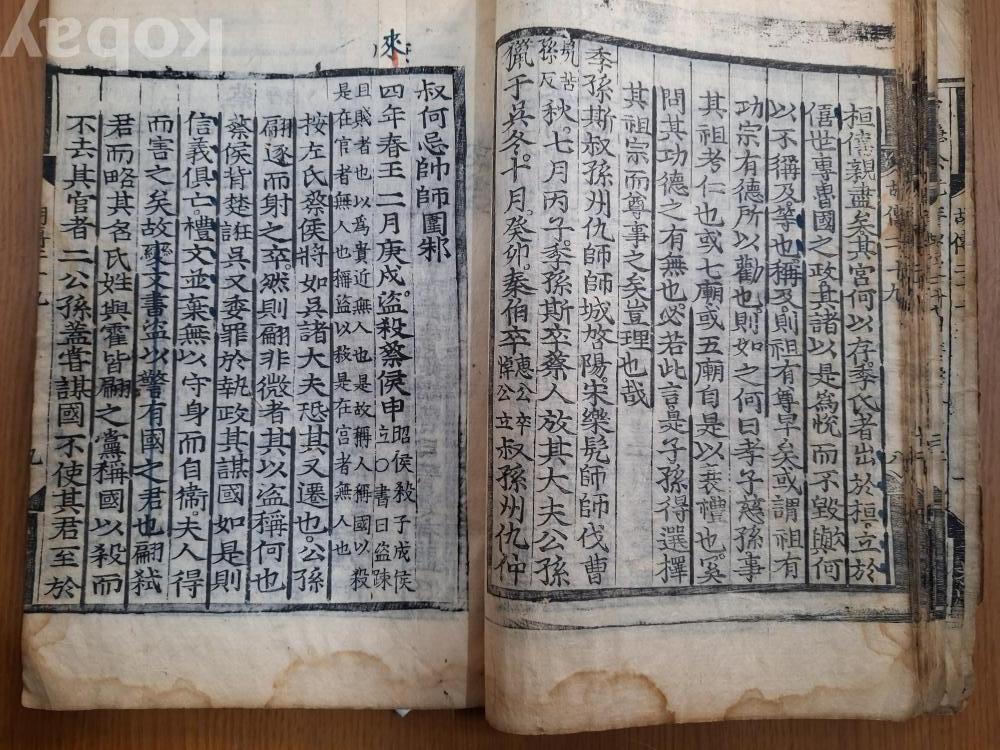 桓僖親盡矣其宮何以存季氏者出於桓立於
僖世專魯國之政其諸以是爲悅而不毀歟何
以不稱及等也稱及則祖有尊卑矣或謂祖有
功宗有德所以勸也則如之何曰孝子慈孫事
其祖考仁也或七廟或五廟自是以衷禮也奚
問其功德之有無也必若此言是子孫得選擇
其祖宗而尊事之矣豈理也哉
季孫斯叔孫州仇帥師城啓陽宋樂髡帥師伐曹
髡苦孫反秋七月丙子季孫斯卒蔡人放其大夫公孫
獵于吳冬十月癸卯秦伯卒惠公卒悼公立叔孫州仇仲
來
叔何忌帥師圍邾
四年春王二月庚戌盜殺蔡侯申昭侯殺子成侯立○書曰盜疎
且賤者也以爲貴近無人也是故稱人稱國以殺
是在官者無人也稱盜以殺是在宮者無人也
按左氏蔡侯將如吳諸大夫恐其又遷也公孫
翩逐而射之卒然則翩非微者其以盜稱何也
蔡侯背楚誑吳又委罪於執政其謀國如是則
信義俱亡禮文並棄無以守身而自衞夫人得
而害之矣故變文書盜以警有國之君也翩弒
君而略其名氏姓與霍皆翩之黨稱國以殺而
不去其官者二公孫蓋嘗謀國不使其君至於
kobay